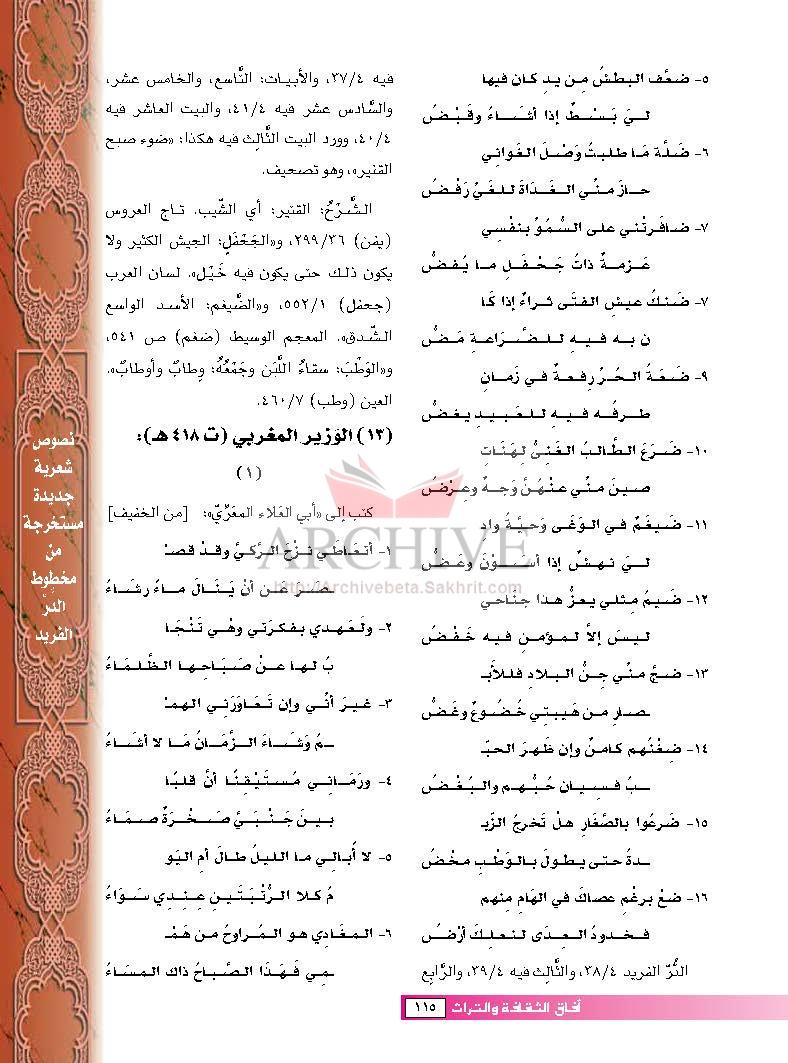 ٥- ضعَّف البطشُ من يدٍ كان فيها
لـيَ بَـسْـطٌ إذا أشـاءُ وقَـبْـضُ
٦- ضَلَّة مَا طلبتُ وَصْلَ الغَواني
حـازَ منِّي الغَـدَاةَ للغَيِّ رَفْضُ
٧- ضـافَـرتْني على السُّمُوِّ بنفْسِي
عَـزمـةٌ ذاتُ جَـحْـفَـلٍ مـا يُفَضُّ
٧- ضَنكُ عيشِ الفتَى ثَراءٌ إذا كَا
نَ به فـيـه لـلـضَّـراعـةِ مَـضُّ
٩- ضَعَةُ الحُـرِّ رِفعةٌ في زَمانٍ
طـرفُـه فـيـه للعَبيدِ يغضُّ
١٠- ضَـرَعَ الطَّالبُ الغَنِيُّ لِهَنَاتٍ
صـينَ منِّي عنْهُنَّ وَجـهٌ وعِـرْضُ
١١- ضَيغَمٌ في الوَغَى وَحيَّةُ وادٍ
لـيَ نَهشٌ إذا أسَـأْوْنَ وعَـضُّ
١٢- ضَيمُ مِثلي يعزُّ هذا جنَاحي
ليسَ إلاَّ لمؤمنٍ فيه خَفْضُ
١٣- ضـجَّ منِّي جِنُّ البلادِ فللأَبـ
ـصارِ من هَيبتي خُضُوعٌ وغَضُّ
١٤- ضِغْنُهم كامنٌ وإن ظَهرَ الحبّـ
ـبُ فسِيان حُبُّهم والبُغْضُ
١٥- ضَرعُوا بالصَّغَارِ هلْ تَخرجُ الزُّبـ
ـدةُ حتى يطولَ بالوَطْبِ مخْضُ
١٦- ضعْ برغْمٍ عصاكَ في الهَامِ مِنهم
فـخـدودُ العِـدَى لنعلِكَ أرْضُ
الدُّر الفريد ٣٨/٤، والثَّالِث فيه ٣٩/٤، والرَّابع
فيه ٣٧/٤، والأبيات: التَّاسع، والخامس عشر،
والسَّادس عشر فيه ٤١/٤، والبيت العاشر فيه
٤٠/٤، وورد البيت الثَّالِث فيه هكذا: «ضوء صبح
القتير»، وهو تصحيف.
الشَّرْخُ: القتير: أي الشَّيب. تاج العروس
(يفن) ٢٩٩/٣٦، و«الجَحْفَل: الجيش الكثير ولا
يكون ذلك حتى يكون فيه خَيْل». لسان العرب
(جحفل) ٥٥٢/١، و«الضَّيغم: الأسد الواسع
الشِّدق». المعجم الوسيط (ضغم) ص ٥٤١،
و«الوَطْبَ: سقاءُ اللَّبَن وجَمْعُهُ: وِطابٌ وأوطابٌ».
العين (وطب) ٤٦٠/٧.
(١٣) الوَزير المغربي (ت ٤١٨ هـ):
(١)
كتب إلى «أبي العَلاء المعَرِّيِّ»: [من الخفيف]
١- أتعَاطَى نَزْحَ الرَّكيِّ وقدْ قصْـ
ـصـرَ عـن أنْ يَـنَـالَ مـاءً رِشَـاءُ
٢- ولَعهدي بفكرَتي وهْي تَنْجَـا
بُ لهـا عـنْ صَـبَـاحِـهـا الظَّلمَاءُ
٣- غـيـرَ أنِّي وإن تَعَـاوَرَني الهمْـ
ـمُ وَشَـاءَ الـزَّمَـانُ مَـا لا أشَـاءُ
٤- ورَمَـانـي مُستَيْقِنًا أنَّ قَلبًـا
بـيـنَ جَنْبَيَّ صَـخْـرَةٌ صـمَّـاءُ
٥- لا أُبـالي ما الليلُ طالَ أمِ اليَو
مُ كلا الرُّتْبتَينِ عِندِي سَوَاءُ
٦- المغَادِي هو المُراوحُ من هَمْـ
ـمِي فَهَذَا الصَّباحُ ذاك المسَاءُ
نصوص
شعرية
جديدة
مستخرجة
من
مخطوط
الدر
الفريد
ARCHIVE
http://Archivebeta.Sakhrit.com
آفاق الثقافة والتراث ١١٥